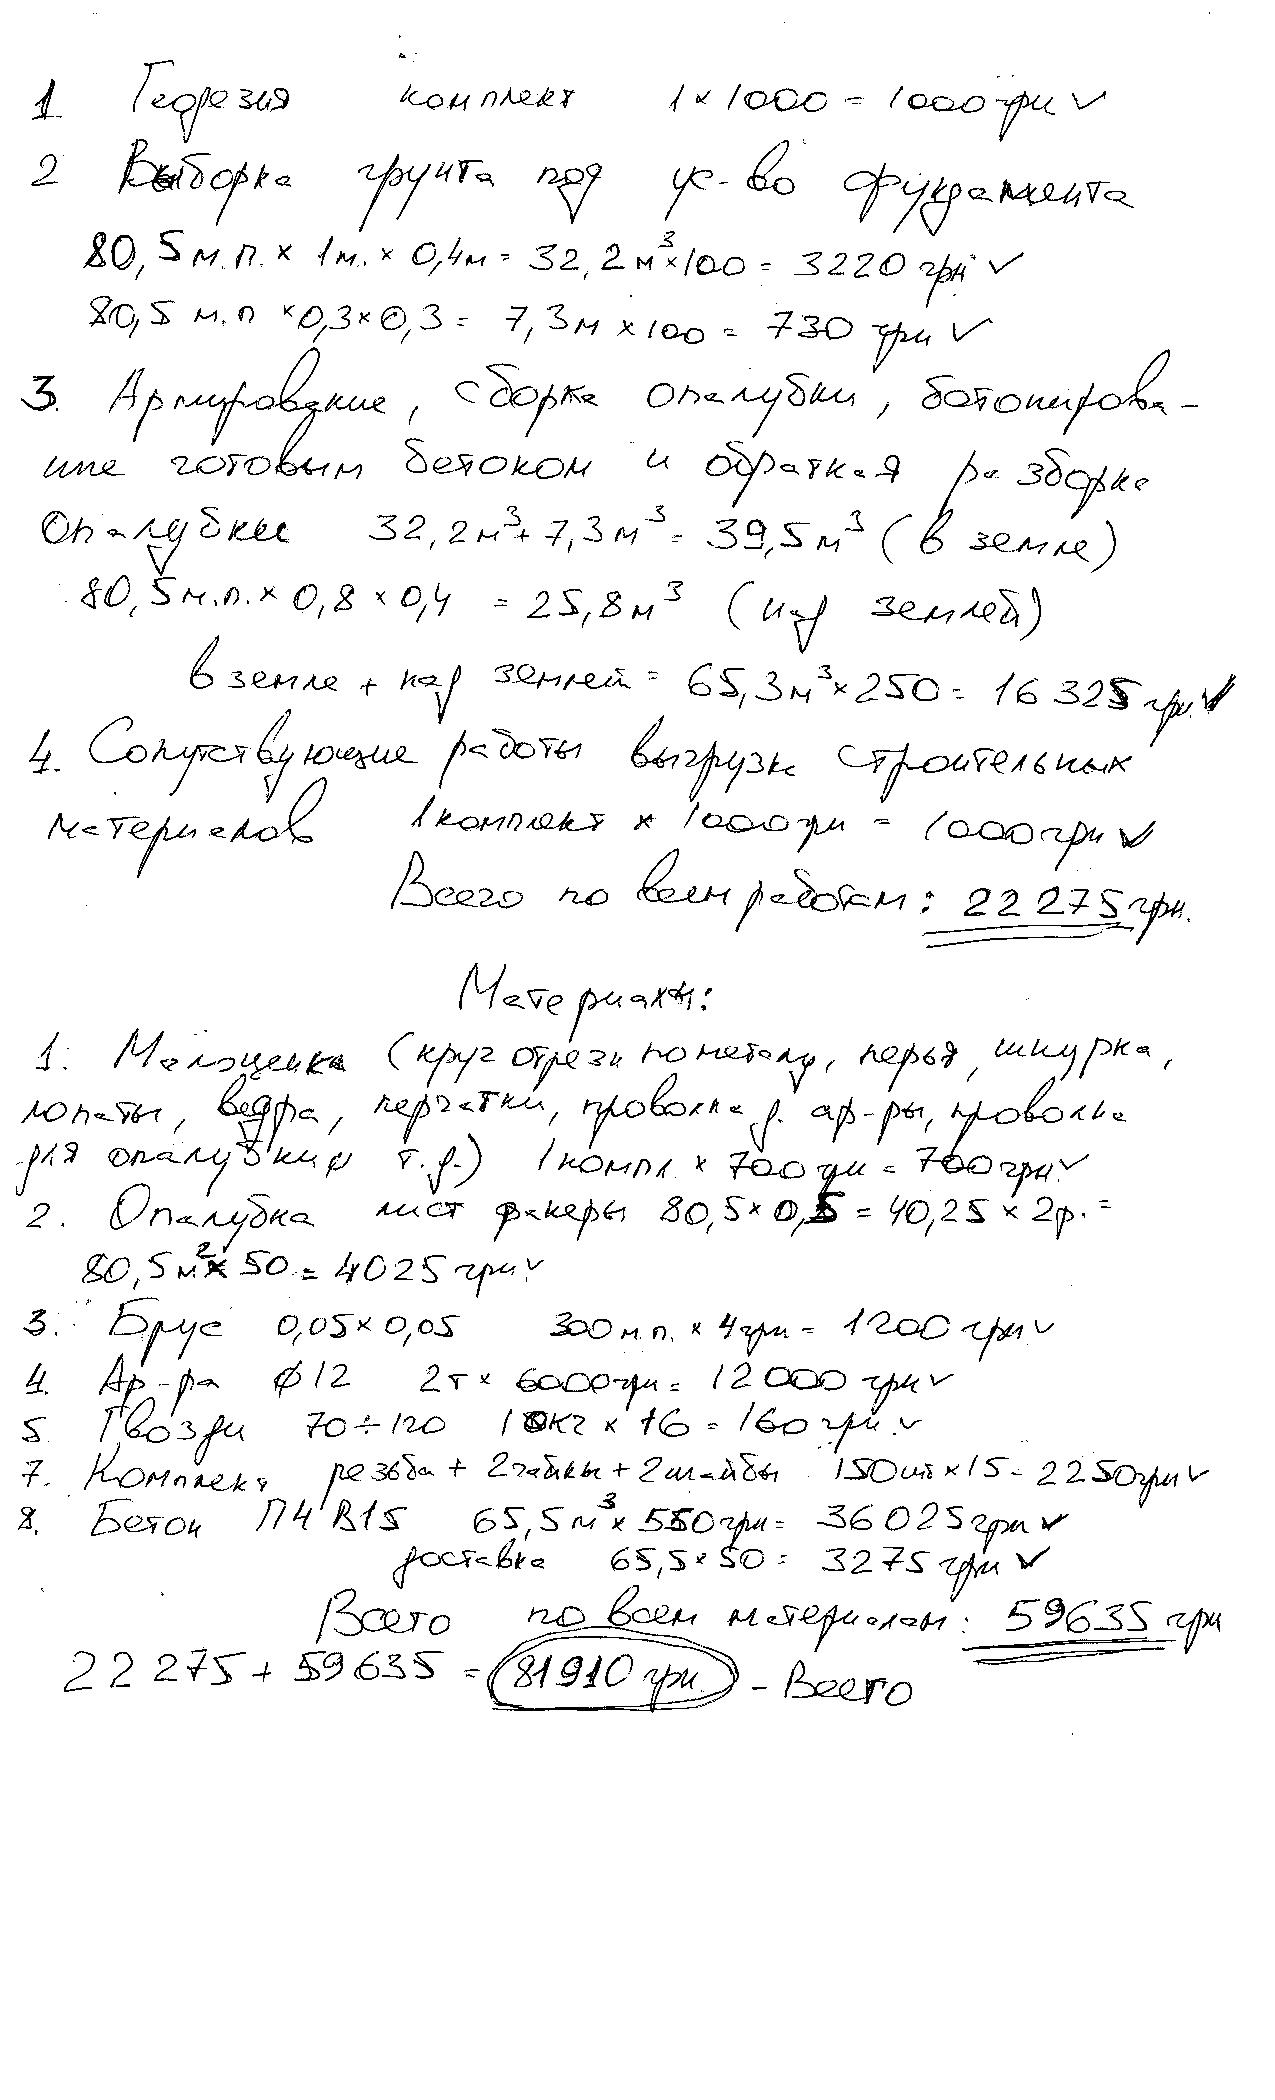 1 Геодезия комплект 1 × 1000 = 1000 грн ✓
2 Выборка грунта под ус-во фундамента
80,5 м.п. × 1м. × 0,4м = 32,2 м³ × 100 = 3220 грн ✓
80,5 м.п × 0,3 × 0,3 = 7,3м × 100 = 730 грн ✓
3. Армирование, сборка опалубки, бетонирова-
ние готовым бетоном и обратная разборка
опалубки 32,2м³ + 7,3м³ = 39,5м³ (в земле)
80,5м.п. × 0,8 × 0,4 = 25,8м³ (над землей)
в земле + над землей = 65,3м³ × 250 = 16 325 грн. ✓
4. Сопутствующие работы выгрузка строительных
материалов 1 комплект × 1000 грн = 1000 грн ✓
Всего по всем работам: 22 275 грн.
Материалы:
1. Малоценка (круг отрезн по металу, перья, шкурка,
лопаты, ведра, перчатки, проволка д. ар-ры, проволка
для опалубки и т.д.) 1 компл × 700 грн = 700 грн ✓
2. Опалубка лист фанеры 80,5 × 0,5 = 40,25 × 2р. =
80,5 м² × 50 = 4025 грн ✓
3. Брус 0,05 × 0,05 300 м.п. × 4 грн = 1200 грн ✓
4. Ар-ра ϕ12 2т × 6000 грн = 12 000 грн ✓
5. Гвозди 70÷120 10кг × 16 = 160 грн ✓
7. Комплект резьба + 2 гайки + 2 шайбы 150 шт × 15 = 2250 грн ✓
8. Бетон П4 В15 65,5 м³ × 550 грн = 36 025 грн ✓
доставка 65,5 × 50 = 3275 грн ✓
Всего по всем материалам: 59635 грн
22 275 + 59635 = 81910 грн. - Всего